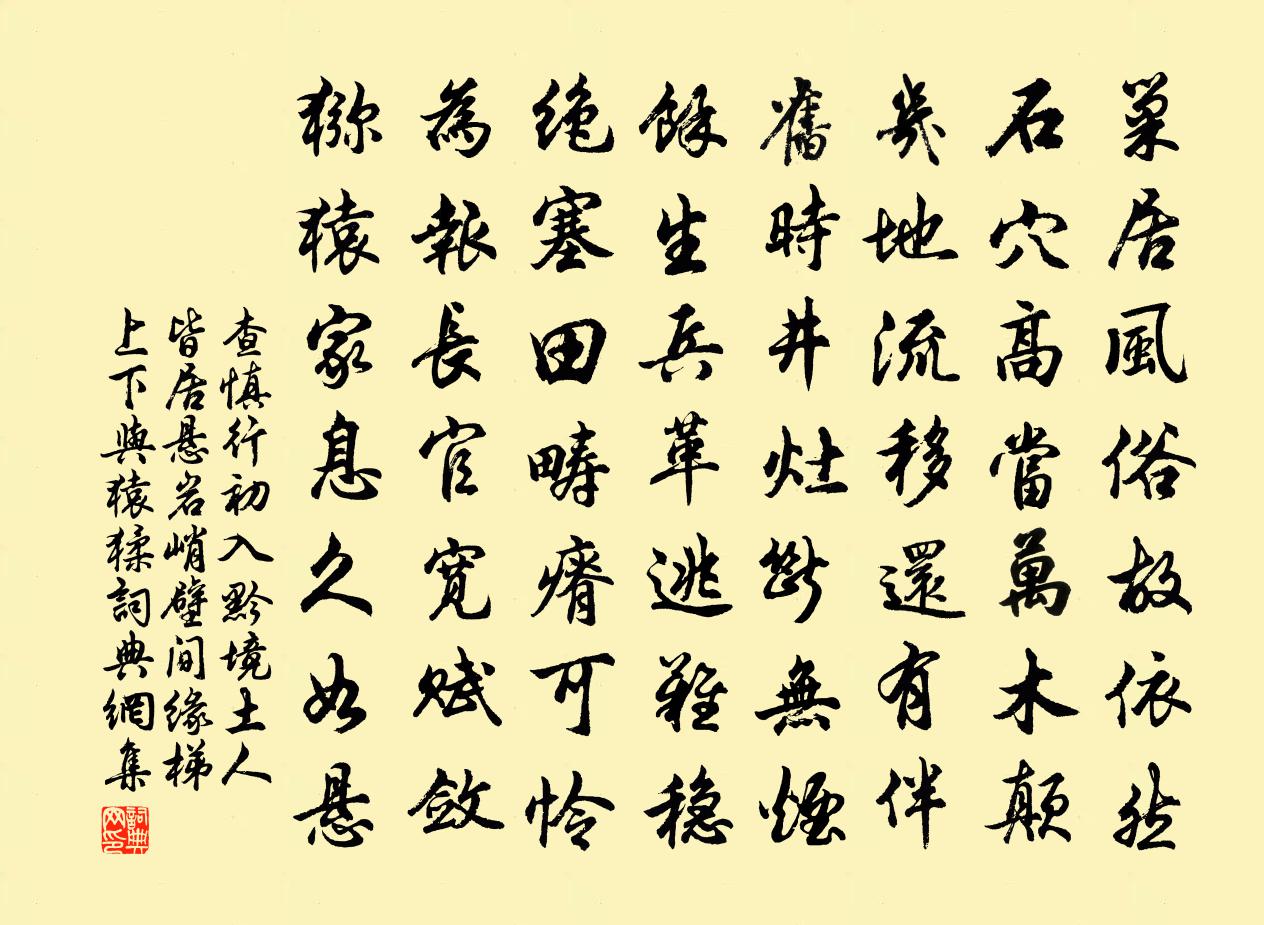 巢居風俗故依然
石穴高當萬木顛
幾地流移還有伴
舊時井灶斷無煙
餘生兵革逃難穩
絶塞田疇瘠可憐
為報長官寬賦斂
猕猿家息久如悬
查慎行初入黔境土人
皆居悬岩峭壁间缘梯
上下與猿猱詞典網集
詞典
网印